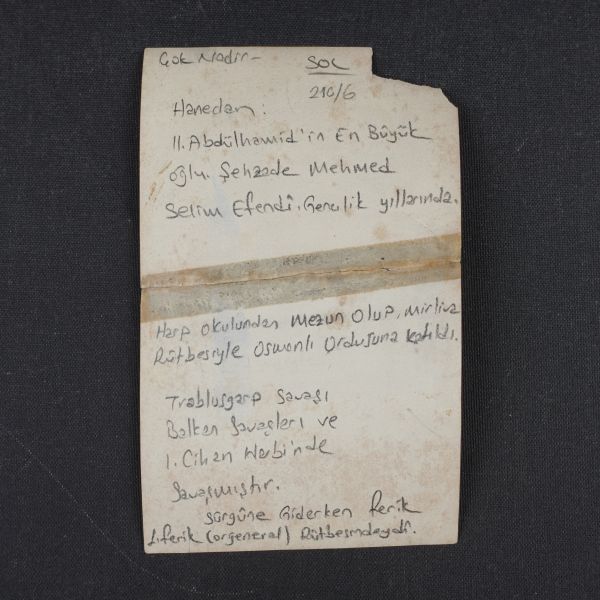 Çok Nadir-
SOL
210/6
Hanedan:
II. Abdülhamid'in En Büyük
oğlu. Şehzade Mehmed
Selim Efendi. Gençlik yıllarında.
Harp okulundan Mezun Olup, Mirliva
Rütbesiyle Osmanlı Ordusuna katıldı.
Trablusgarp Savaşı
Balkan Savaşları ve
1. Cihan Harbi'nde
Savaşmıştır.
Sürgüne Giderken ferik
1. ferik (orgeneral) Rütbesindeydi.